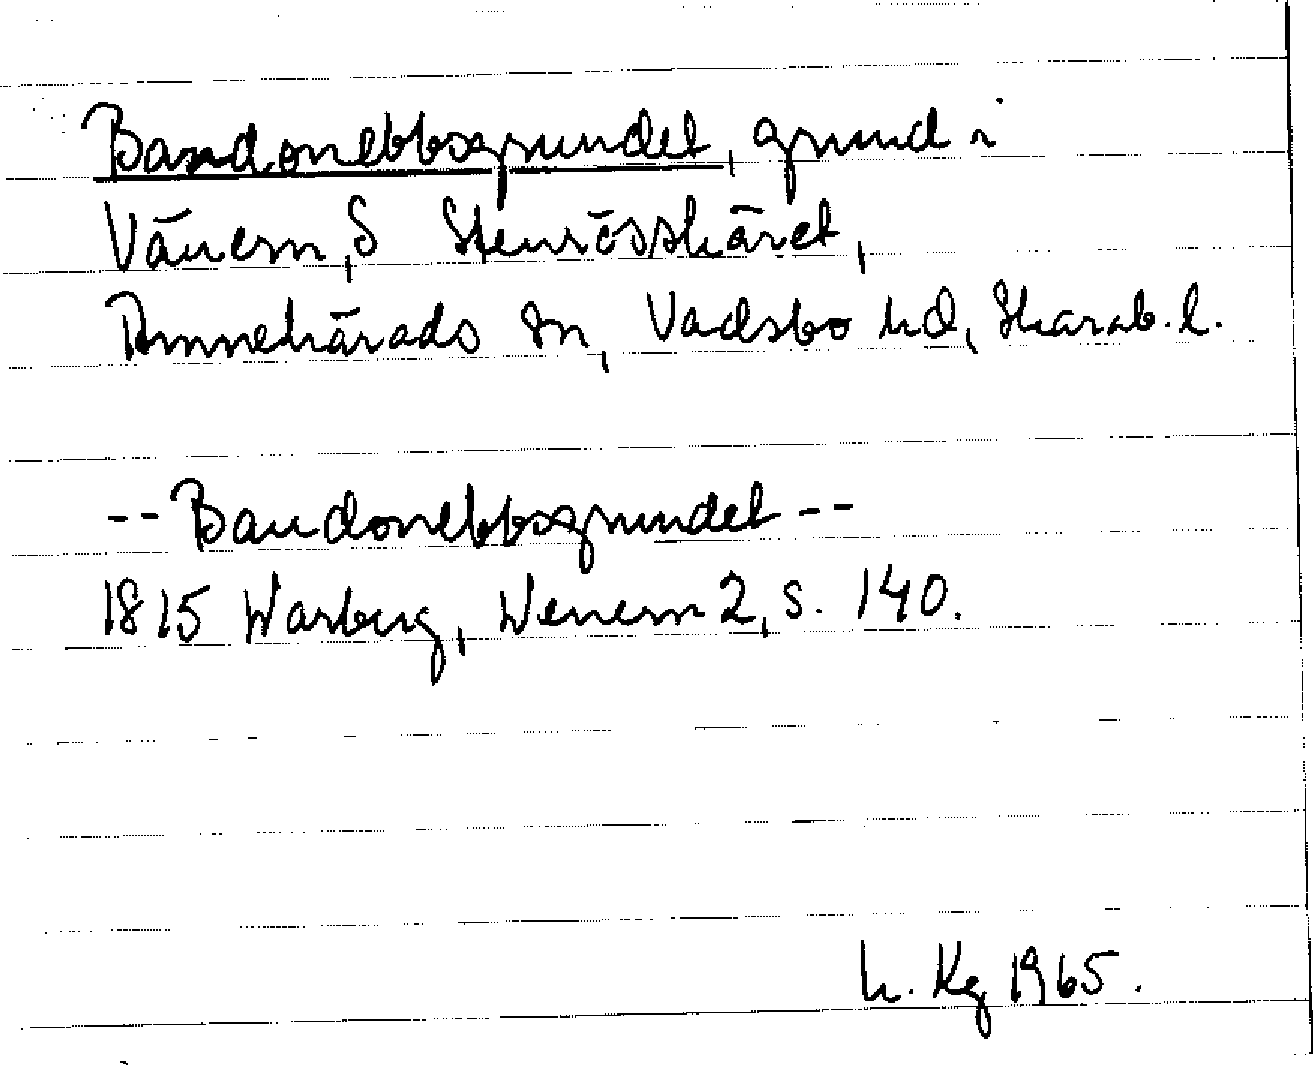 Bandonebbsgrundet, grund i
Vänern, S Stenrösskäret,
Amnehärads sn, Vadsbo hd, Skarab. l.
-- Bandonebbsgrundet --
1815 Warberg, Wenern 2, s. 140.
h. Kg 1965.